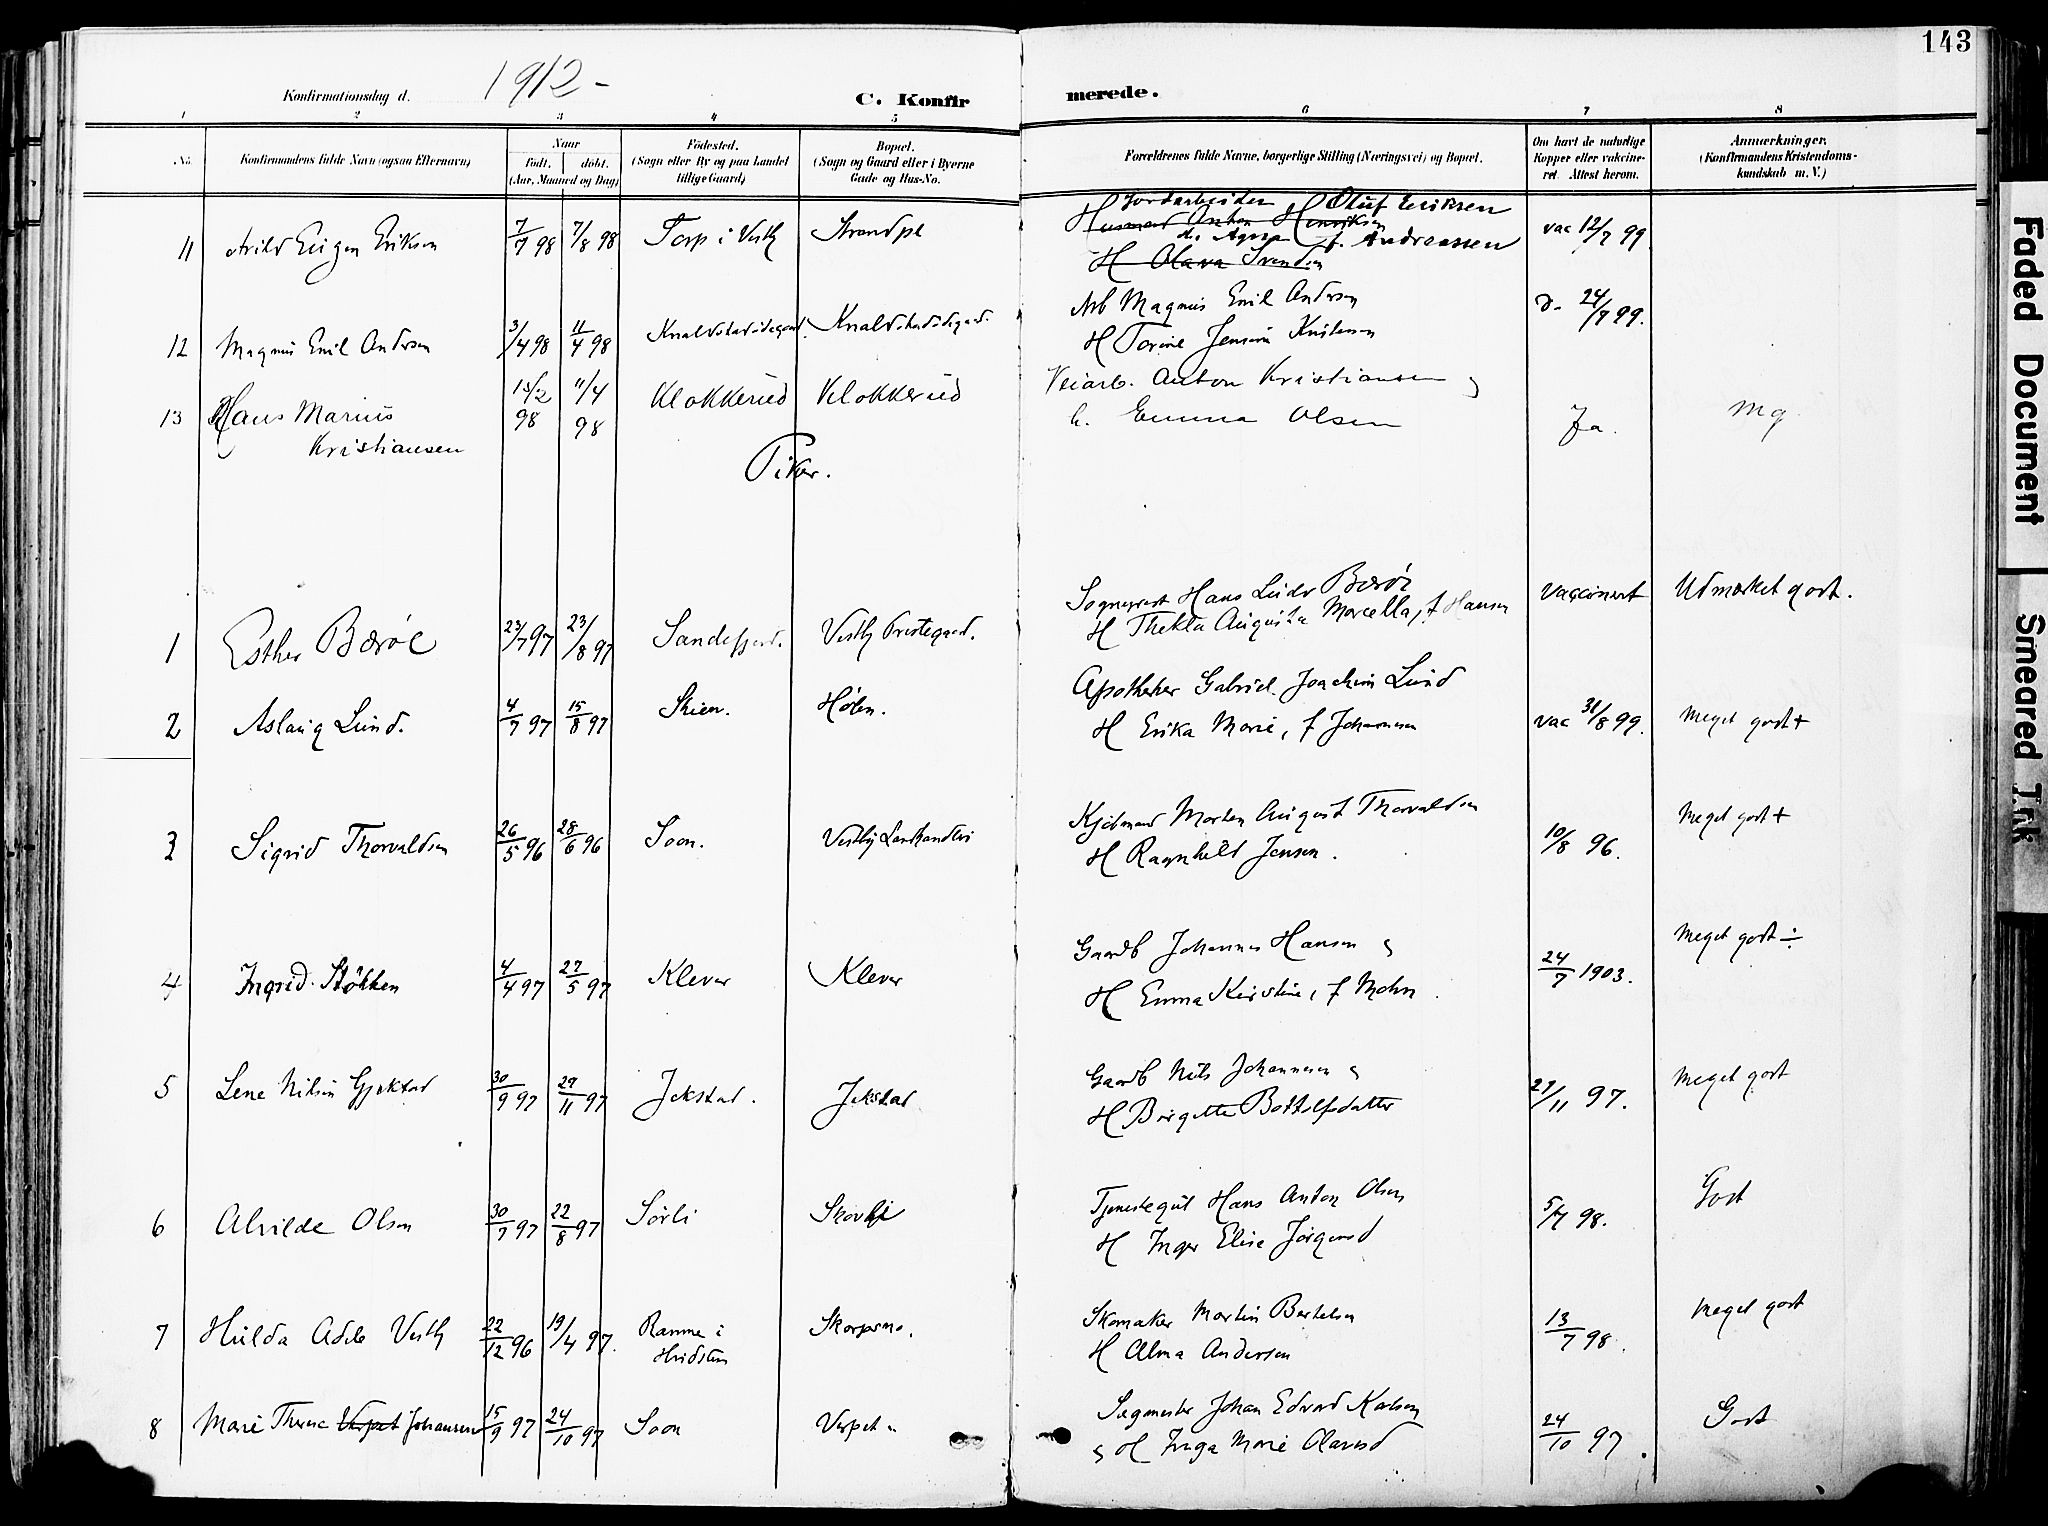 143
Konfirmationsdag d. 1912-
C. Konfirmerede.
1 2 3 4 5 6 7 8
No. Konfirmandens fulde Navn (ogsaa Efternavn) Naar født. døbt. (Aar, Maaned og Dag) Fødested. (Sogn eller By og paa Landet tillige Gaard) Bopæl. (Sogn og Gaard eller i Byerne Gade og Hus-No. Forældrenes fulde Navne, borgerlige Stilling (Næringsvei) og Bopæl. Om havt de naturlige Kopper eller vakcineret. Attest herom. Anmærkninger. (Konfirmandens Kristendomskundskab m. V.)
Jordarbeider Oluf Eriksen
11 Arild Eugen Eriksen 7/7 98 7/8 98 Torp i Vestby Strandpl Husmand Anton Henriksen vac 12/7 99
f. Andreassen
H Olava Svendsen
12 Magnus Emil Andersen 3/4 98 11/4 98 Knaldstadødegaard Knaldstadødegaard. Arb Magnus Emil Andersen do 24/7 99.
H Torine Jensine Kristensen
13 Hans Marius Kristiansen 15/2 98 11/4 98 Klokkerud Klokkerud Veiarb. Anton Kristiansen og Ja. Mg.
h. Emma Olsen
Piker.
1 Esther Bærøe 23/7 97 23/8 97 Sandefjord. Vestby Prestegaard. Sogneprest Hans Bærøe vaccinert Udmerket godt.
H Thekla Augusta Marcella, f Hansen
2 Aslaug Lund. 4/7 97 15/8 97 Skien. Hølen. Apotheker Gabriel Joachim Lund vac 31/8 99. Meget godt +
H Erika Marie, f Johannesen
3 Sigrid Thorvaldsen 26/5 96 28/6 96 Soon. Vestby Landhandleri Kjøbmand Morten August Thorvaldsen 10/8 96. Meget godt +
H Ragnhild Jensen.
4 Ingrid Støkken 4/4 97 27/5 97 Klever Klever Gaardb Johannes Hansen og 24/7 1903. Meget godt ÷
H Emma Kirstine, f Mohn.
5 Lene Nilsen Gjekstad 30/9 97 29/11 97 Jekstad. Jekstad Gaardb Nils Johannesen og 29/11 97. Meget godt
H Birgitte Bottolfsdatter
6 Alvilde Olsen 30/7 97 22/8 97 Sørli Skovli Tjenestegut Hans Anton Olsen 5/7 98. Godt
H Inger Elise Jørgensd
7 Hulda Adele Vestby 22/12 96 19/4 97. Ramme i Hvidsten Skorpsmo. Skomaker Martin Bertelsen 13/7 98. Meget godt
H Alma Andersen
8 Marie Therese Verpet Johansen 15/9 97 24/10 97 Soon Verpet Sagmester Johan Edvard Karlsen 24/10 97. Godt
og H Inga Marie Olavesd
Faded Document Smeared Ink